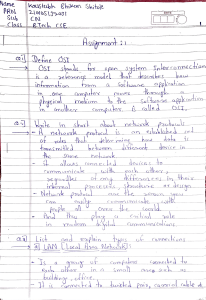 Name Kaustubh Bhuvan Shitole
PRN
Sub CN
Class B.Tech CSE
Assignment: 1
Q.1) Define OSI
→ OSI stands for open system Interconnection
is a reference model that describes how
information from a software application
in one computer moves through a
physical medium to the software application
in another computer, is called OSI
Q.2) Write in short about network protocols
→ A network protocol is an established set
of rules that determine how data is
transmitted between different device in
the same network
It allows connected devices to
communicate with each other,
regardless of any differences in their
internal processes, structure or design
Network protocols are the reason you
can easily communicate with
people all over the world
And they play a critical role
in modern digital communications
Q.3) List and explain types of connections
LAN (Local Area Network)
Is a group of computers connected to
each other in a small area such as
building, office